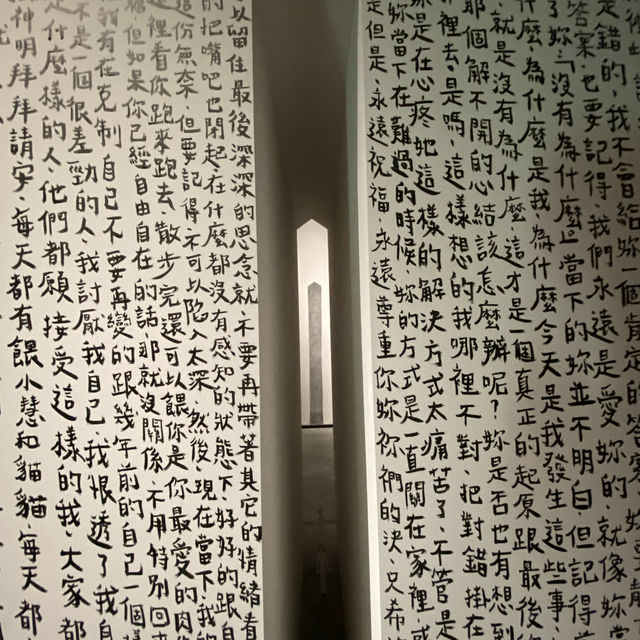 是錯的,我不會給妳一個肯定的答案
答案,也要記得,我們永遠是愛妳的,就像妳當
了妳「沒有為什麼」當下的妳並不明白,但記得
什麼為什麼是我,為什麼今天是我發生這些事,
就是沒有為什麼,這才是一個真正的起原跟最後
那個解不開的心結該怎麼辦呢?妳是否也有想到
裡去,是嗎,這樣想的我哪裡不對,把對錯掛在
妳是在心疼她這樣的解決方式太痛苦了,不管是
妳當下在難過的時候,妳的方式是一直關在家裡,或
是但是,永遠祝福,永遠尊重你妳祢們的決,只希
以留住最後深深的思念就不要再帶著其它的情緒看
的把嘴吧也閉起,在什麼都沒有感知的狀態下好好的跟自
這份無奈,但要記得,不可以陷入太深,然後,現在當下,我的
裡看你跑來跑去,散步完還可以餵你是你最愛的肉
但如果你已經自由自在的話那就沒關係,不用特別回
我有在克制自己不要再變的跟幾年前的自己一個樣
不是一個很差勁的人,我討厭我自己,我恨透了我自
是什麼樣的人,他們都願接受這樣的我,大家都
神明拜拜請安,每天都有餵小慧和貓貓,每天都